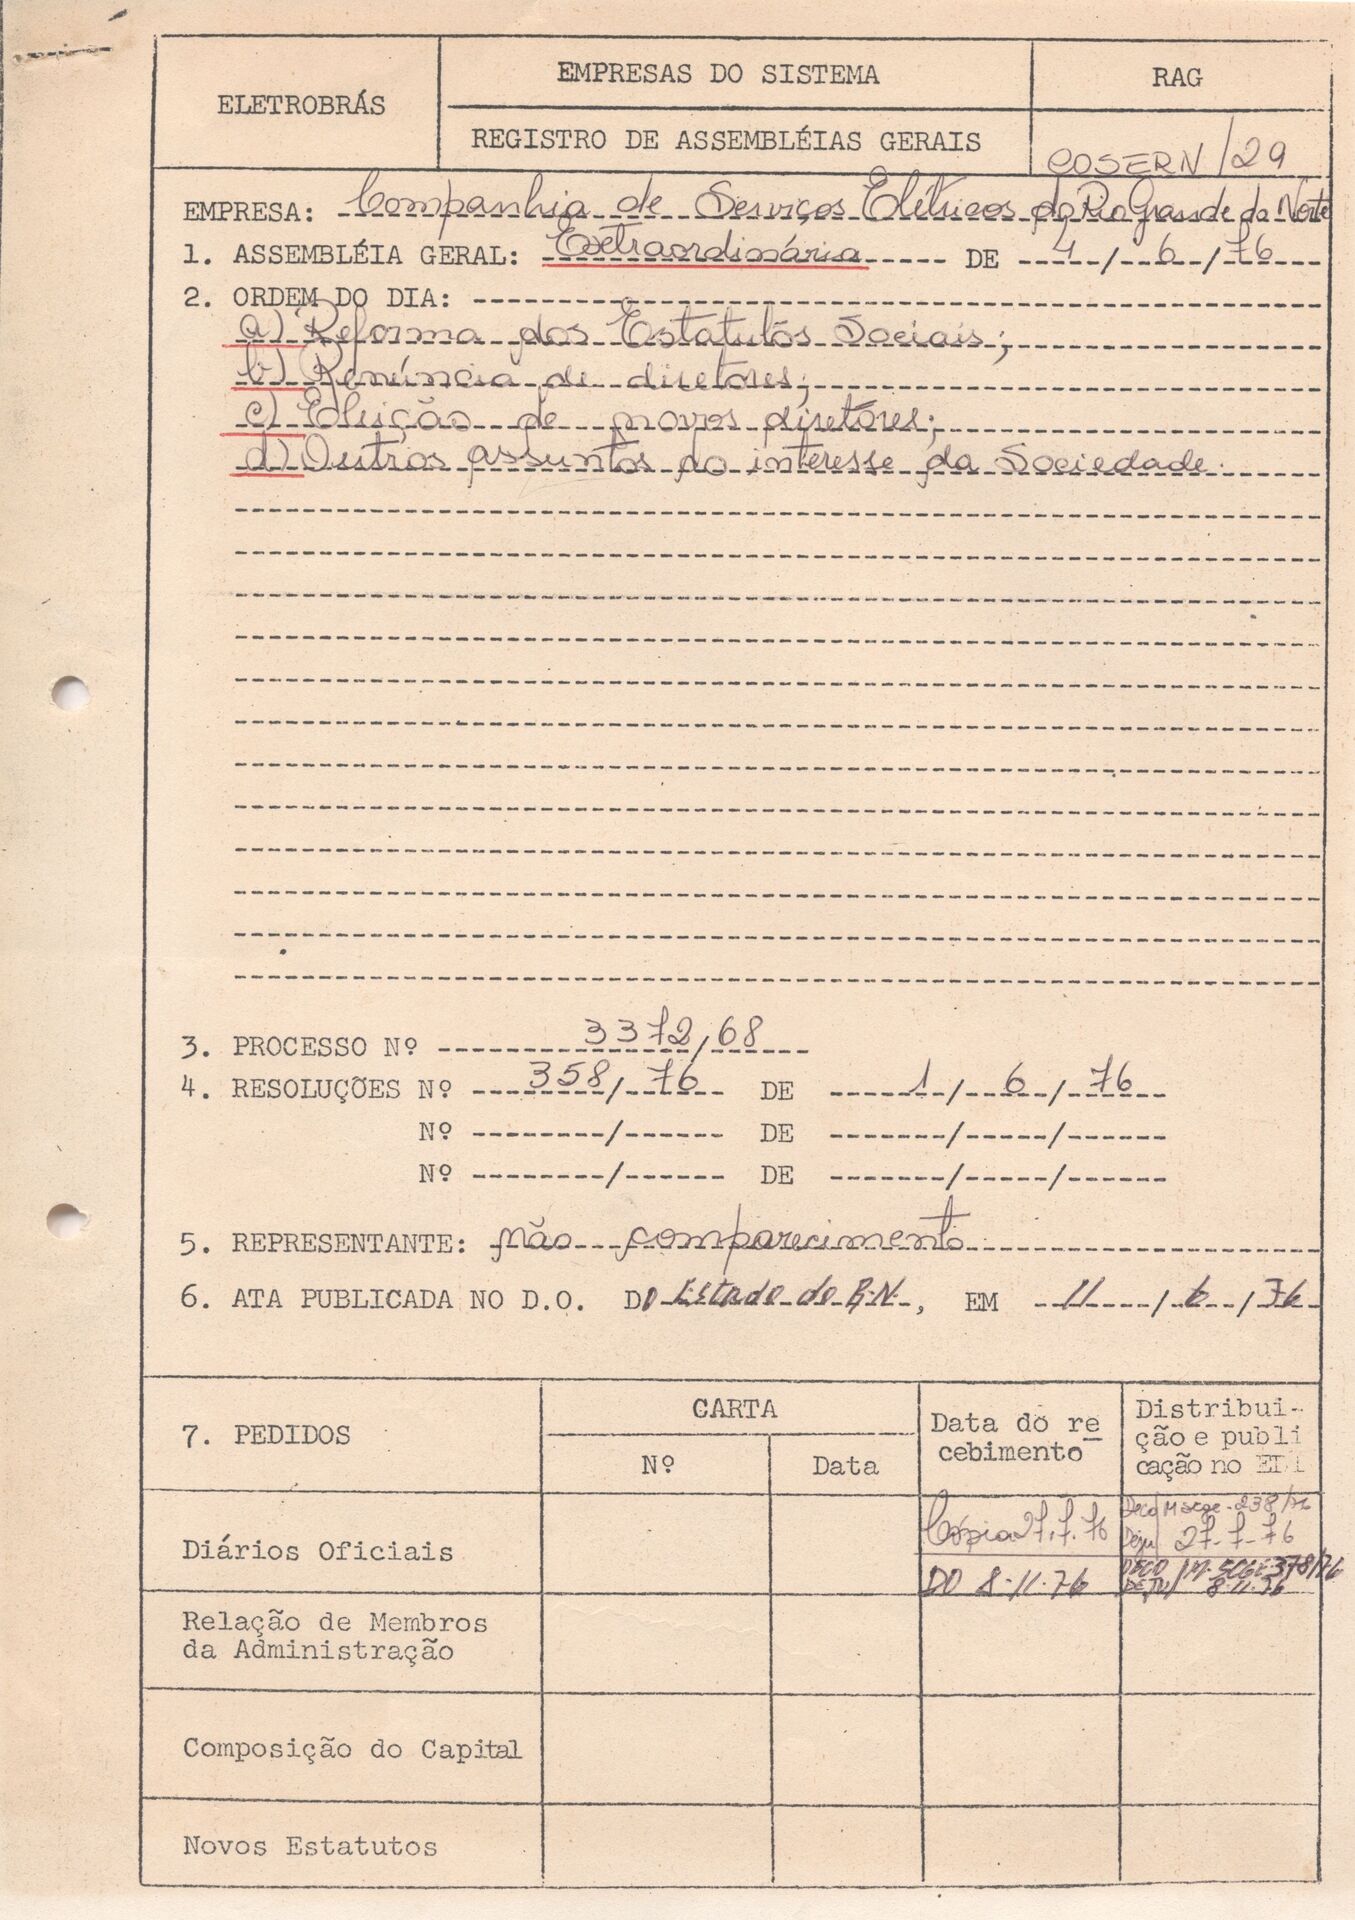 ELETROBRÁS
EMPRESAS DO SISTEMA
RAG
REGISTRO DE ASSEMBLÉIAS GERAIS
COSERN/29
EMPRESA: Companhia de Serviços Elétricos do Rio Grande do Norte
1. ASSEMBLÉIA GERAL: Extraordinária DE 4/6/76
2. ORDEM DO DIA:
a) Reforma dos Estatutos Sociais;
b) Renúncia de diretores;
c) Eleição de novos diretores;
d) Outros assuntos do interesse da Sociedade.
3. PROCESSO Nº 3372/68
4. RESOLUÇÕES Nº 358/76 DE 1/6/76
Nº / DE / /
Nº / DE / /
5. REPRESENTANTE: não comparecimento
6. ATA PUBLICADA NO D.O. DO Estado do R.N., EM 11/6/76
7. PEDIDOS
CARTA
Nº
Data
Data do re
cebimento
Distribui-
ção e publi
cação no
Diários Oficiais
Cópia 27.7.76
238/76
27-7-76
DO 8-11-76
DECO 378/76
8-11-76
Relação de Membros
da Administração
Composição do Capital
Novos Estatutos